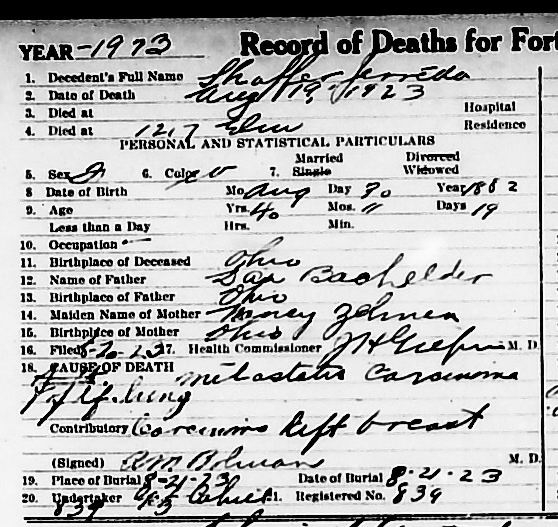 YEAR - 1923 Record of Deaths for Fort
1. Decedent's Full Name Shaffer
2. Date of Death Aug 19, 1923
3. Died at Hospital
4. Died at 1217 Elm Residence
PERSONAL AND STATISTICAL PARTICULARS
5. Sex F 6. Color W 7. Married Single Divorced Widowed
8 Date of Birth Mo. Aug Day Year 1882
9. Age Yrs. 40 Mos. 11 Days 19
Less than a Day Hrs. Min.
10. Occupation -
11. Birthplace of Deceased Ohio
12. Name of Father Bachelder
13. Birthplace of Father Ohio
14. Maiden Name of Mother Nancy
15. Birthplace of Mother Ohio
16. Filed 8-20-23 17. Health Commissioner M. D.
18. CAUSE OF DEATH Metastatic Carcinoma
of lung
Contributory Carcinoma left breast
(Signed) M. D.
19. Place of Burial 8-21-23 Date of Burial 8-21-23
20. Undertaker 21. Registered No. 839
839